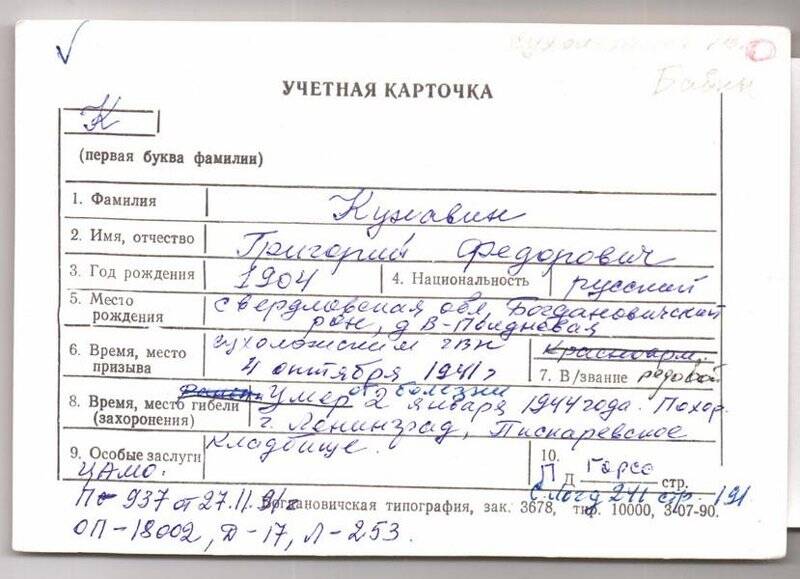 Байны
УЧЕТНАЯ КАРТОЧКА
К
(первая буква фамилии)
1. Фамилия Кунавин
2. Имя, отчество Григорий Федорович
3. Год рождения 1904 4. Национальность русский
5. Место рождения Свердловская обл Богдановичский
рон, д В-Полдневая
6. Время, место призыва Сухоложским ГВК
4 октября 1941г
Красноарм.
7. В/звание рядовой
8. Время, место гибели (захоронения) Умер от болезни 2 января 1944 года. Похор.
г. Ленинград, Пискаревское
кладбище.
9. Особые заслуги
10.
П Д стр.
ЦАМО.
стр. 191
Пе 937 от 27.11.91г
Богдановичская типография, зак. 3678, тир. 10000, 3-07-90.
ОП-18002, Д-17, Л-253.